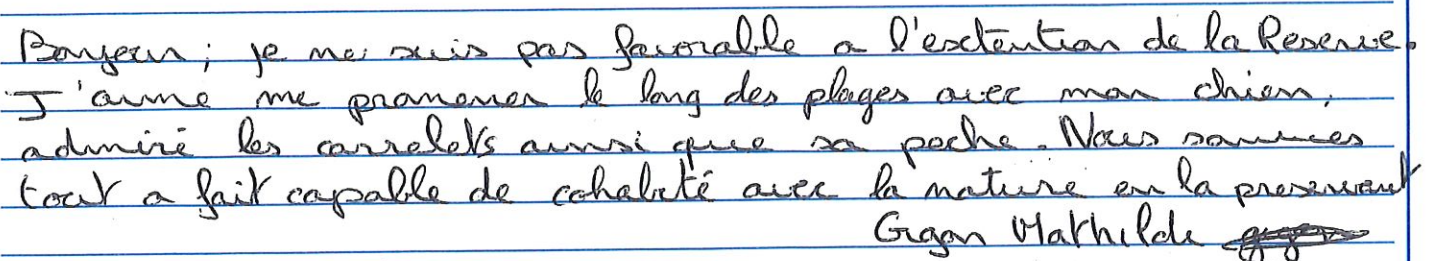 Bonjour; je ne suis pas favorable a l'esctention de la Reserve.
J'aime me promener le long des plages avec mon chien,
admiré les carrelets ainsi que sa peche. Nous sommes
tout a fait capable de cohabité avec la nature en la preservant
Gigon Mathilde